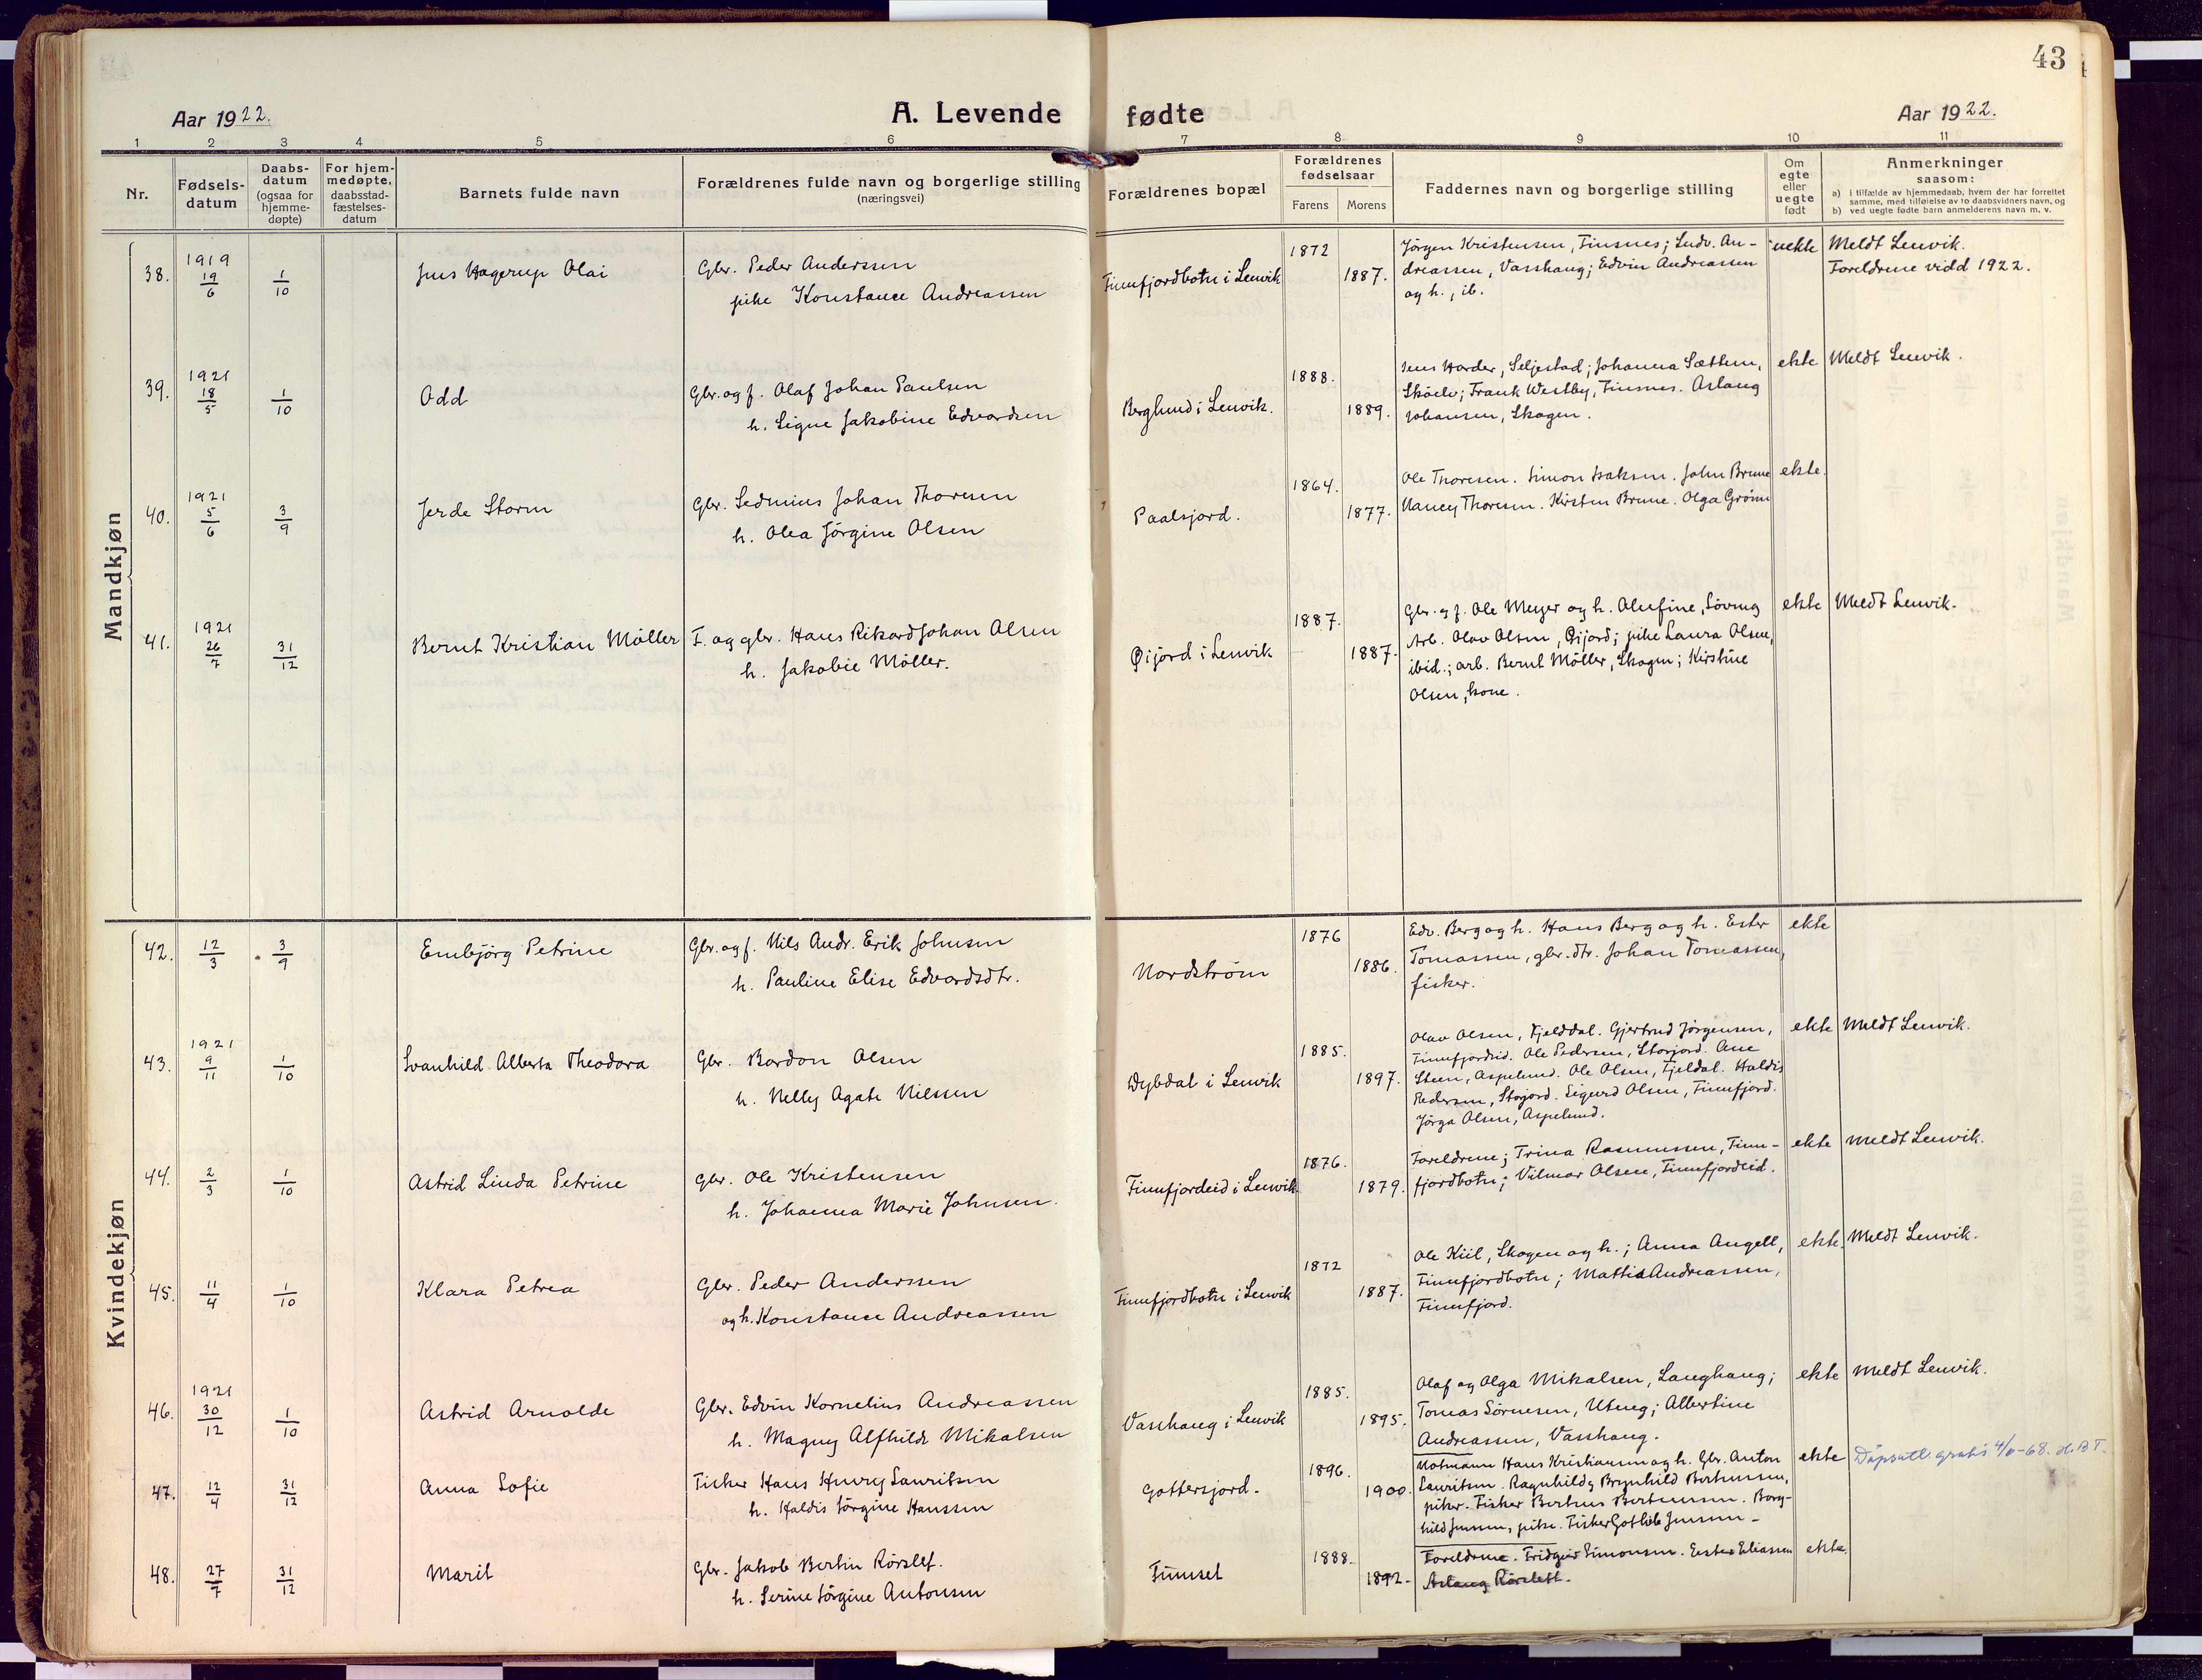 43
Aar 1922.
A. Levende fødte
Aar 1922.
1 2 3 4 5 6 7 8 9 10 11
Nr.
Fødsels-
datum
Daabs-
datum
(ogsaa for
hjemme-
døpte)
For hjem-
medøpte,
daabsstad-
fæstelses-
datum
Barnets fulde navn
Forældrenes fulde navn og borgerlige stilling
(næringsvei)
Forældrenes bopæl
Forældrenes
fødselsaar
Farens Morens
Faddernes navn og borgerlige stilling
Om
egte
eller
uegte
født
Anmerkninger
saasom:
a) i tilfælde av hjemmedaab, hvem der har forrettet
samme, med tilføielse av to daabsvidners navn, og
b) ved uegte fødte barn anmelderens navn m. v.
Mandkjøn
38. 1919 19/6 1/10 Jens Hagerup Olai
Gbr. Peder Anderssen
pike Konstance Andreassen
Finnfjordbotn i Lenvik
1872
1887.
Jörgen Kristensen, Finsnes; Ludv. An-
dreassen, Vasshaug; Edvin Andreassen
og h., ib.
uekte
Meldt Lenvik.
Foreldrene vidd 1922.
39. 1921 18/5 1/10 Odd
Gbr. og f. Olaf Johan Paulsen
h. Signe Jakobine Edvardsen
Berglund i Lenvik.
1888.
1889.
Jens Harder, Seljestad; Johanna Sættem,
Skåelv; Frank Westby, Finsnes. Aslaug
Johansen, Skogen.
ekte
Meldt Lenvik.
40. 1921 5/6 3/9 Jerde Storm
Gbr. Sedenius Johan Thoresen
h. Olea Jörgine Olsen
Paalsjord.
1864.
1877.
Ole Thoresen. Simon Isaksen. John Brune
Nancy Thoresen. Kirsten Brune. Olga Grönn
ekte.
41. 1921 26/7 31/12 Bernt Kristian Möller
F. og gbr. Hans Rikard Johan Olsen
h. Jakobie Möller.
Øijord i Lenvik
1887.
1887.
Gbr. og f. Ole Meyer og h. Olufine, Lövmg
Arb. Olav Olsen, Øijord; pike Laura Olsen,
ibid.; arb. Bernt Möller, Skogen; Kirstine
Olsen, kone.
ekte
Meldt Lenvik.
Kvindekjøn
42. 12/3 3/9 Embjörg Petrine
Gbr. og f. Nils Andr. Erik Johnsen
h. Pauline Elise Edvardsdtr.
Nordström
1876
1886.
Edv. Berg og h. Hans Berg og h. Ester
Tomassen, gbr.dtr. Johan Tomassen,
fisker.
ekte
43. 1921 9/11 1/10 Svanhild Alberta Theodora
Gbr. Bardon Olsen
h. Nelly Agate Nilssen
Dybdal i Lenvik
1885.
1897.
Olav Olsen, Fjelddal. Gjertrud Jörgensen,
Finnfjordeid. Ole Pedersen, Storjord. Ane
Steen, Aspelund. Ole Olsen, Fjeldal. Haldis
Pedersen, Storjord. Sigurd Olsen, Finnfjord.
Jörga Olsen, Aspelund.
ekte
Meldt Lenvik.
44. 2/3 1/10 Astrid Linda Petrine
Gbr. Ole Kristensen
h. Johanna Marie Johnsen.
Finnfjordeid i Lenvik.
1876.
1879.
Foreldrene; Trina Rasmussen, Finn-
fjordbotn; Vilmar Olsen, Finnfjordeid.
ekte
Meldt Lenvik.
45. 11/4 1/10 Klara Petrea
Gbr. Peder Anderssen
og h. Konstance Andreassen
Finnfjordbotn i Lenvik
1872
1887.
Ole Kiil, Skogen og h.; Anna Angell,
Finnfjordbotn; Mattis Andreassen,
Finnfjord.
ekte.
Meldt Lenvik.
46. 1921 30/12 1/10 Astrid Arnolde
Gbr. Edvin Kornelius Andreassen
h. Magny Alfhild Mikalsen
Vasshaug i Lenvik
1885.
1895.
Olaf og Olga Mikalsen, Langhaug;
Tomas Sörensen, Uteng; Albertine
Andreassen, Vasshaug.
ekte
Meldt Lenvik.
47. 12/4 31/12 Anna Sofie
Fisker Hans Henry Lauritsen
h. Haldis Jörgine Hanssen
Gottersjord.
1896.
1900.
Notmann Hans Kristiansen og h. Gbr. Anton
Lauritsen. Ragnhild og Brynhild Berthensen,
piker. Fisker Berteus Berteussen. Borg-
hild Jensen, pike. Fisker Gotlieb Jensen
ekte
Dåpsatt. gratis
48. 27/7 31/12 Marit
Gbr. Jakob Bertin Rörslet.
h. Serine Jörgine Antonsen
Finnset
1888.
1892.
Foreldrene. Fridgeir Simonsen. Ester Eliassen
Aslaug Rörslett.
ekte.